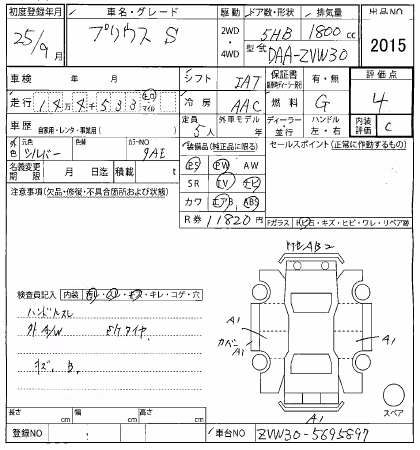 初度登録年月 車名・グレード 駆動 ドア数・形状 排気量 出品NO
25/9月 プリウス S 2WD ・ 4WD 5HB 1800cc 2015
型式 DAA-ZVW30
車検 年 月 シフト IAT 保証書 有・無 評価点
走行 144533 キロ マイル 冷房 AAC 燃料 G 4
車歴 自家用・レンタ・事業用( ) 定員 5人 外車モデル 年 ディーラー ・ 並行 ハンドル 左・右 内装評価 C
色 元色 シルバー 色替 カラーNO 装備品(純正品に限る) セールスポイント(正常に作動するもの)
名義変更期限 月 日迄 積載 t PS PW AW
注意事項(欠品・修復・不具合箇所および状態) SR TV ナビ
カワ エアB ABS
R券 11820円 Fガラス トビ石・キズ・ヒビ・ワレ・リペア跡
検査員記入 内装 汚レ・スレ・キズ・キレ・コゲ・穴
ハンドルスレ
外A/W
キズ、B、
A1
A1
A1
A1
スペア
長さ cm 幅 cm 高さ cm
登録NO 車台NO ZVW30-5695897